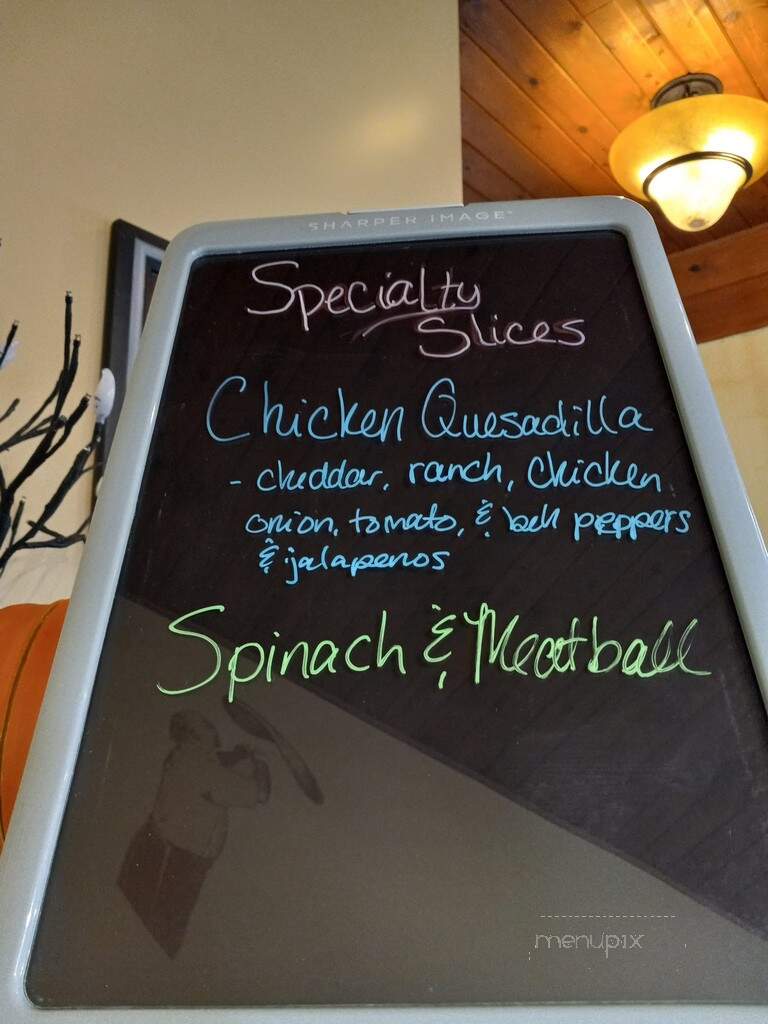 SHARPER IMAGE
Specialty
Slices
Chicken Quesadilla
- cheddar, ranch, chicken
onion, tomato, & bell peppers
& jalapenos
Spinach & Meatball
menupix